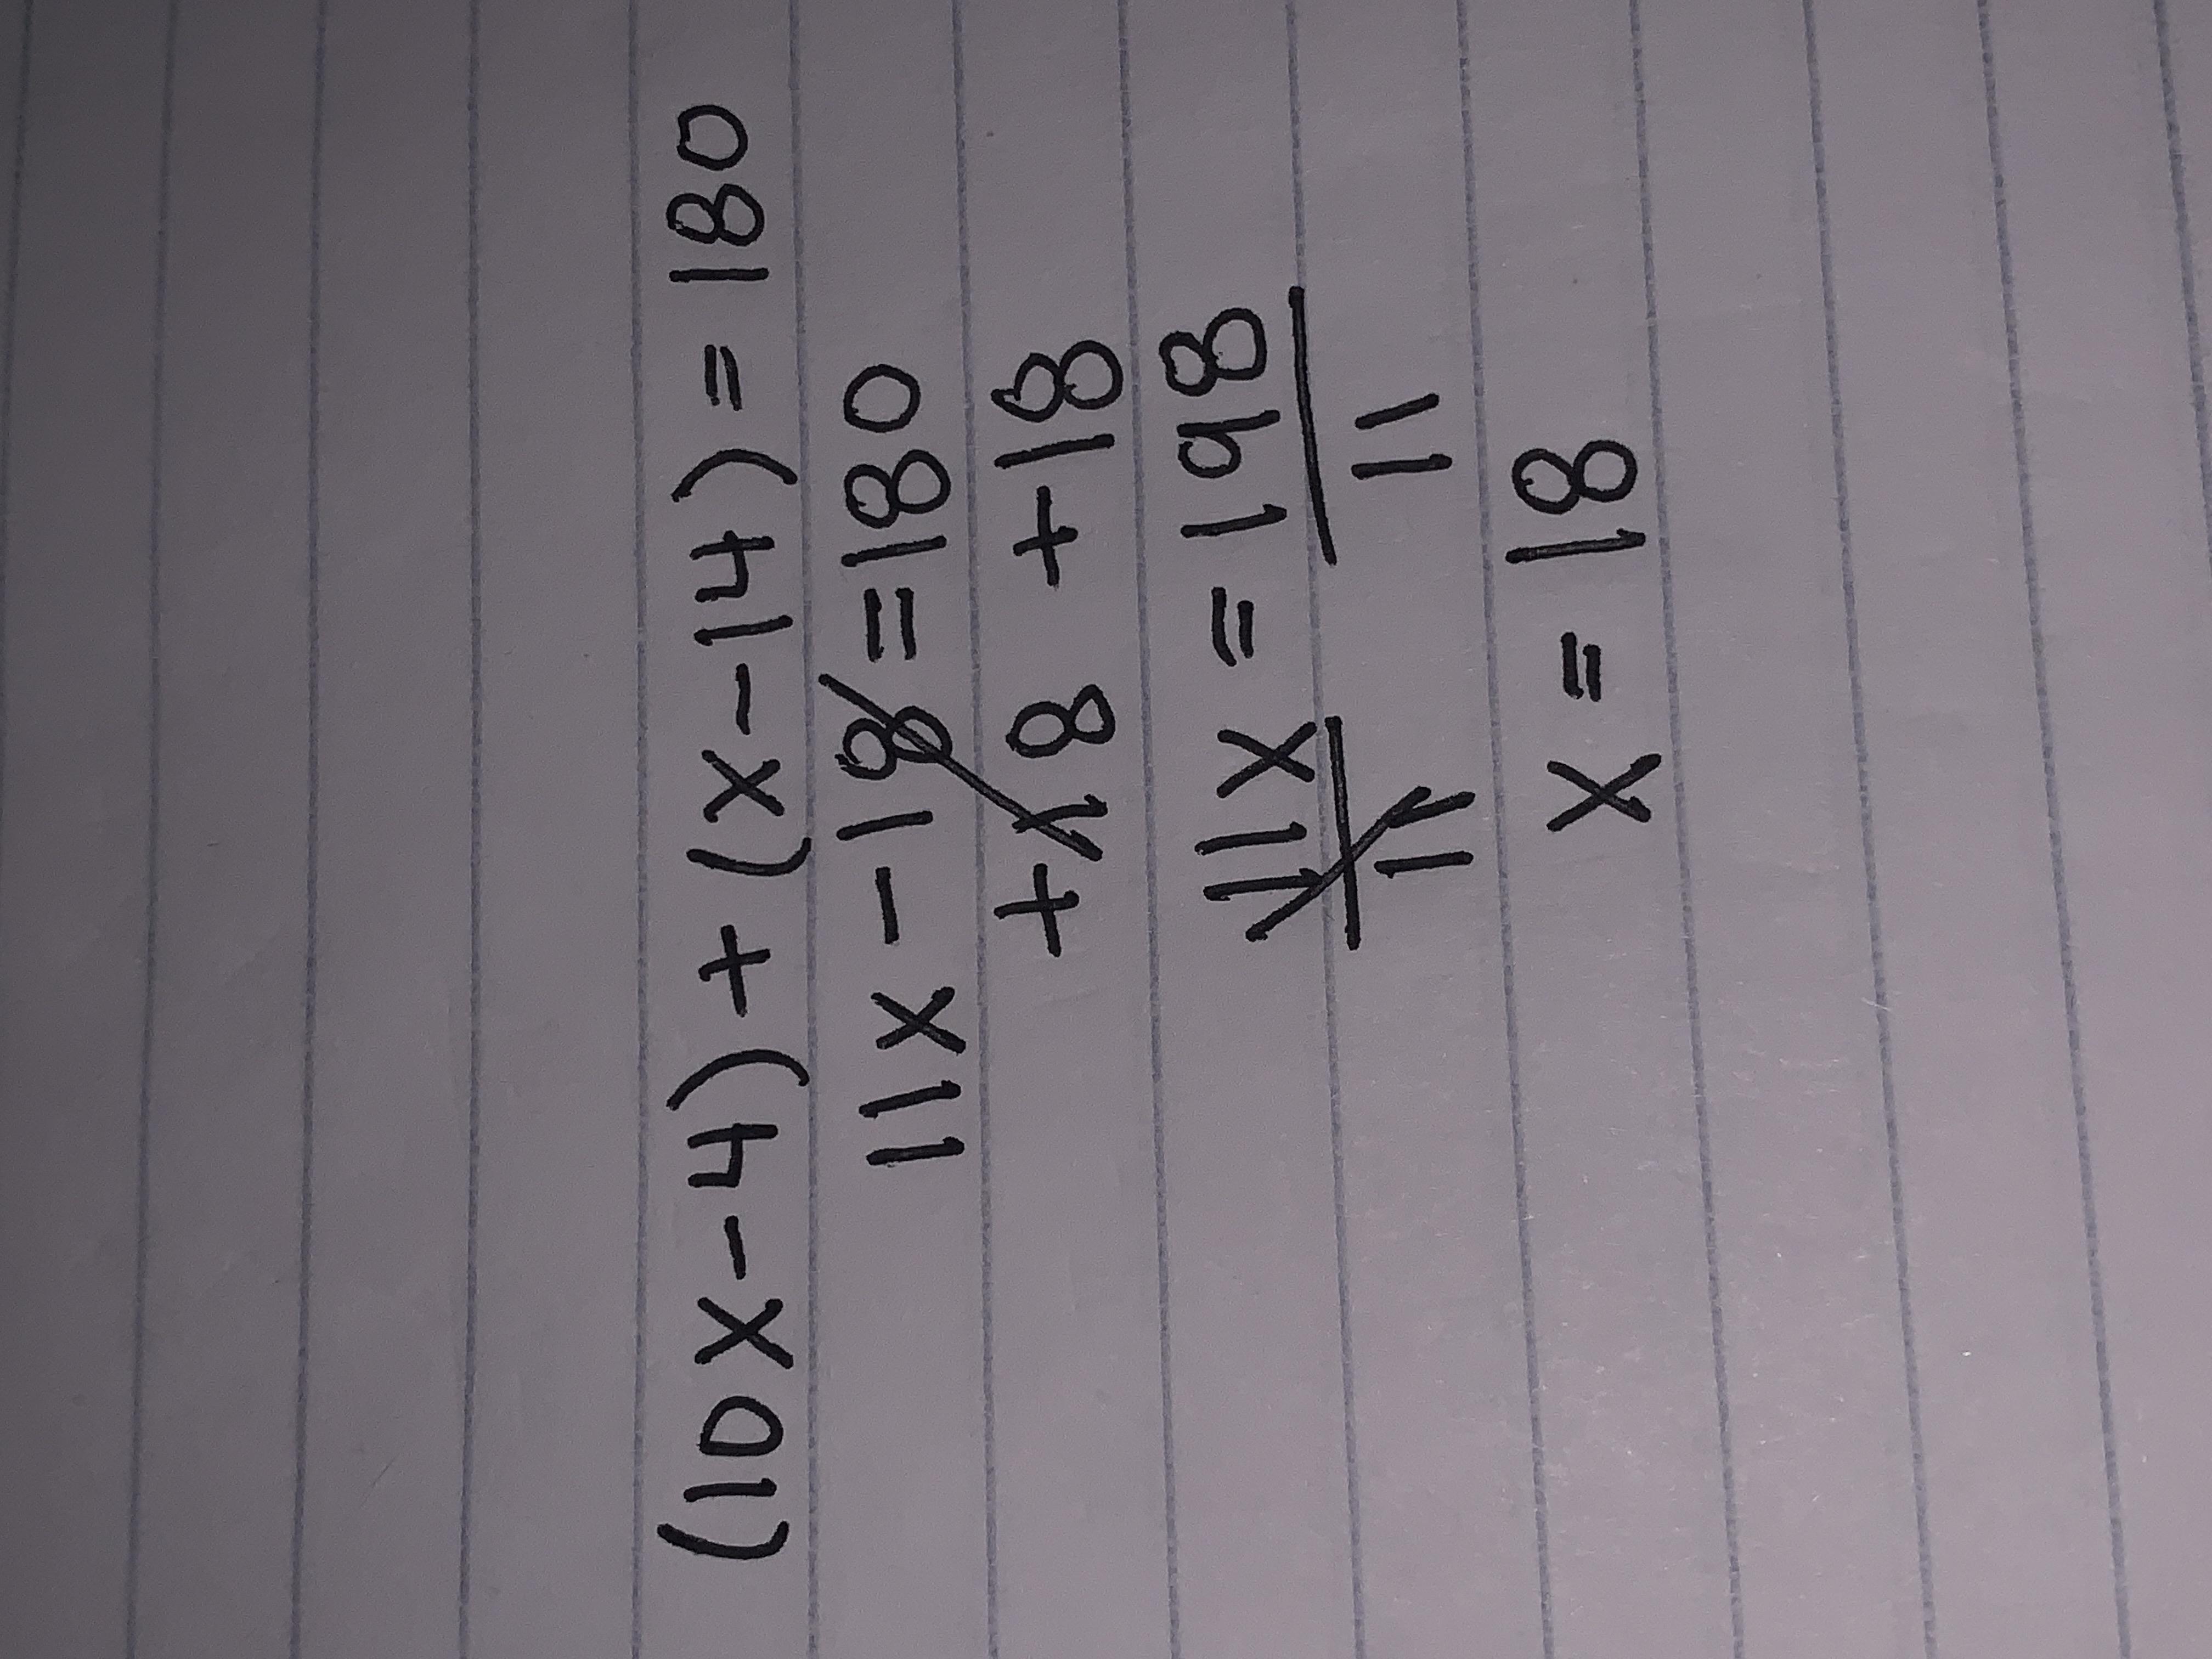 (10x-4) + (x-14) = 180
11x - 18 = 180
+18 +18
11x = 198
11 11
x = 18